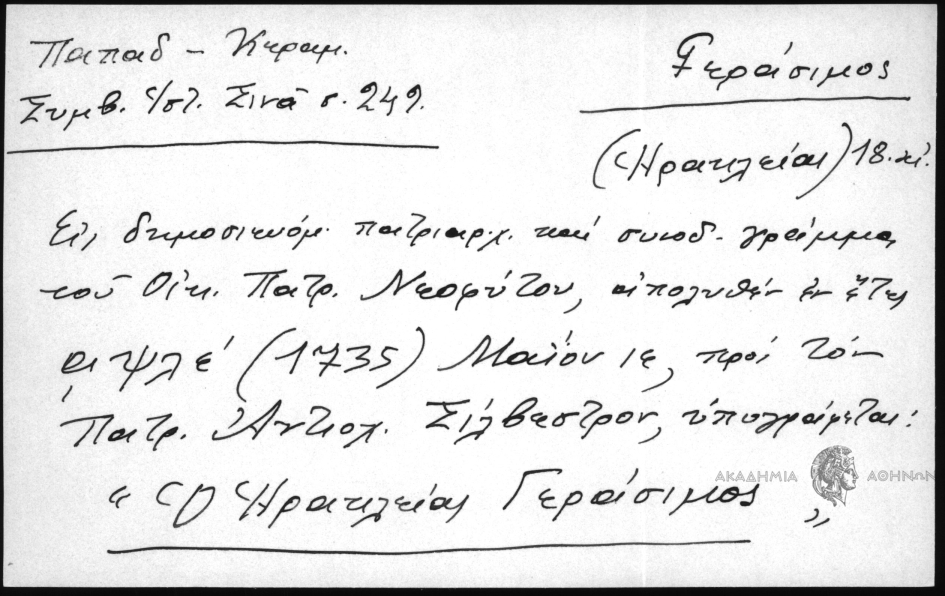 Παπαδ - Κεραμ.
Συμβ. ἱστ. Σινᾶ σ. 249.
Γεράσιμος
(Ἡρακλείας) 18. αἰ.
Εἰς δημοσιευόμ. πατριαρχ. καὶ συνοδ. γράμμα
τοῦ Οἰκ. Πατρ. Νεοφύτου, ἀπολυθὲν ἐν ἔτει
͵αψλέ (1735) Μαΐου ιε, πρὸς τὸν
Πατρ. Ἀντιοχ. Σίλβεστρον, ὑπογράφεται:
ΑΚΑΔΗΜΙΑ ΑΘΗΝΩΝ
« Ὁ Ἡρακλείας Γεράσιμος »